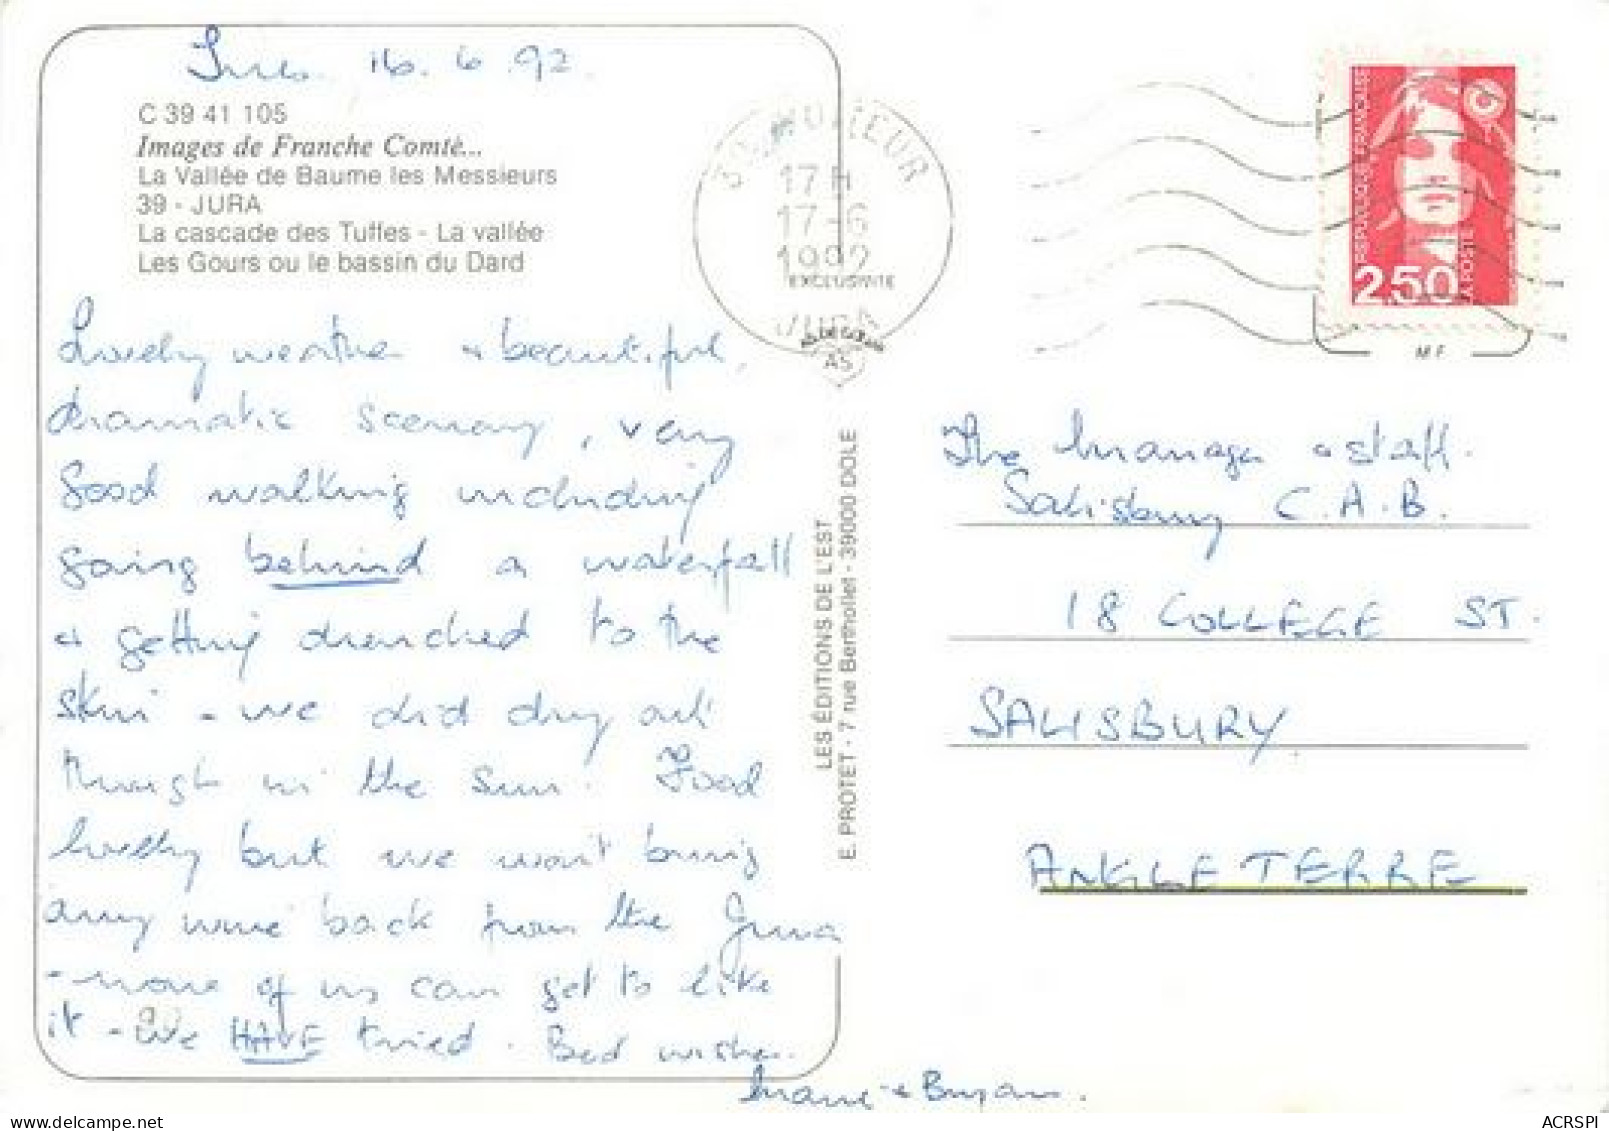 Tues. 16.6.92.
C 39 41 105
Images de Franche Comté...
La Vallée de Baume les Messieurs
39 - JURA
La cascade des Tuffes - La vallée
Les Gours ou le bassin du Dard
Lovely weather & beautiful,
dramatic scenery, very
good walking including
going behind a waterfall
& getting drenched to the
skin - we did dry out
though in the sun. Food
lovely but we won't bring
any wine back from the Jura
- none of us can get to like
it - We HAVE tried. Best wishes.
& Bryan.
17H
17-6
1992
EXCLUSIVITE
JURA
AS
LES ÉDITIONS DE L'EST
E. PROTET - 7 rue Berthollet - 39000 DOLE
REPUBLIQUE FRANCAISE
2,50
LA POSTE
M F
The Manager & staff.
Salisbury C.A.B.
18 COLLEGE ST.
SALISBURY
ANGLETERRE
ACRSPI